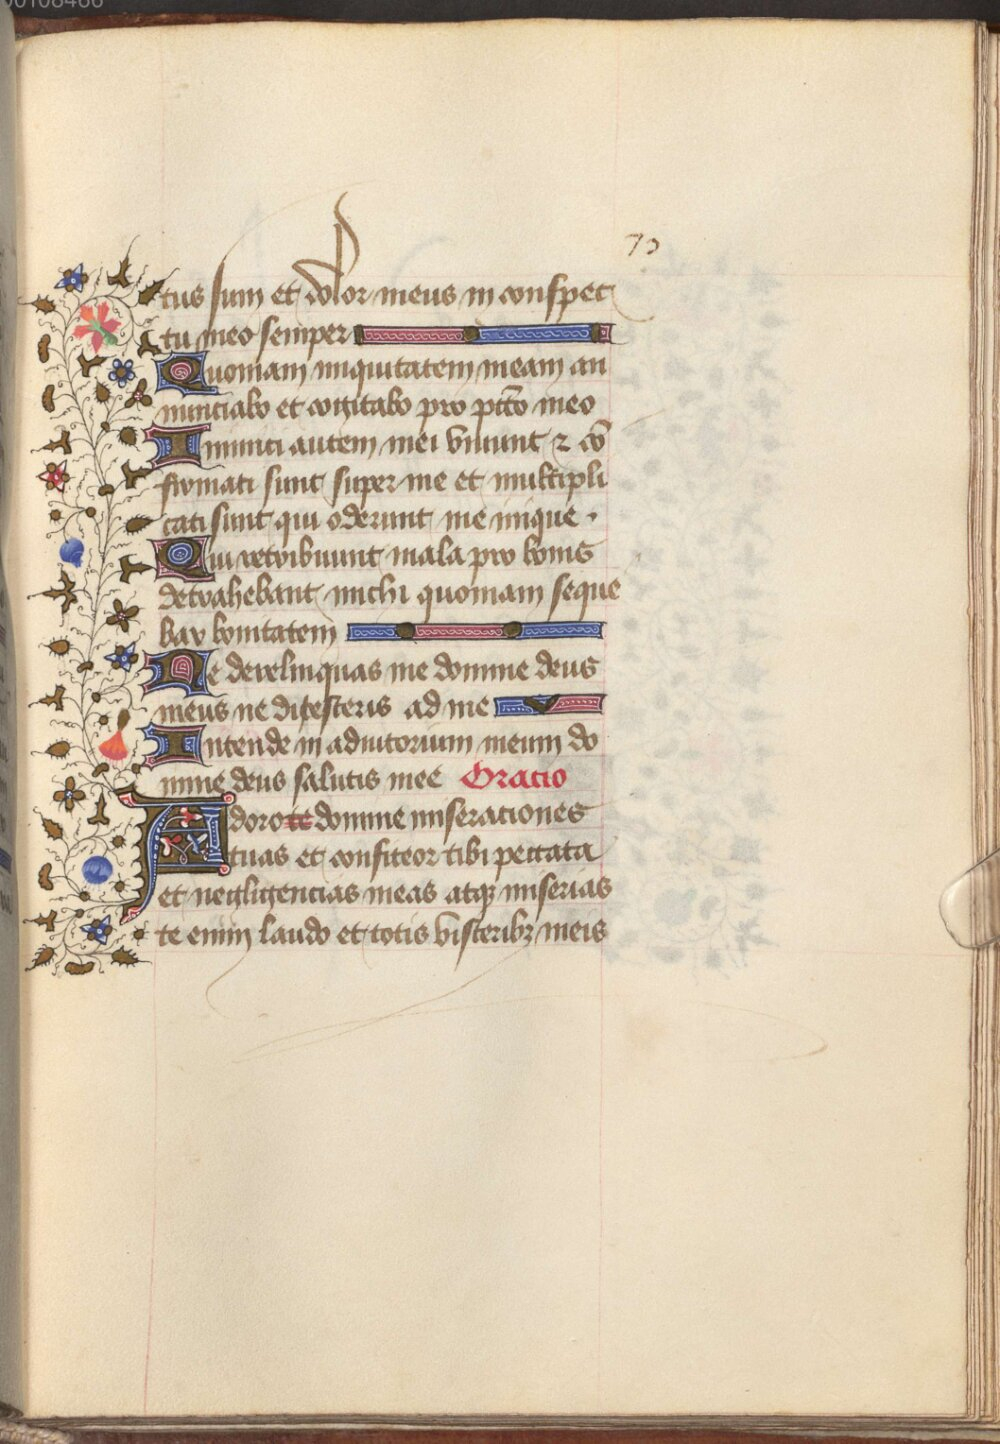 00108466
73
tus sum et dolor meus in conspec
tu meo semper
Quoniam iniquitatem meam an
nunciabo et cogitabo pro pctō meo
Inimici autem mei viuunt ⁊ cō
firmati sunt super me et multipli
cati sunt qui oderunt me inique ·
Qui retribuunt mala pro bonis
detrahebant michi quoniam seque
bar bonitatem
Ne derelinquas me domine deus
meus ne discesseris ad me
Intende in adiutorium meum do
mine deus salutis mee Oracio
Adoro te domine miserationes
tuas et confiteor tibi peccata
et negligencias meas atqꝫ miserias
te enim laudo et totis visceribꝫ meis